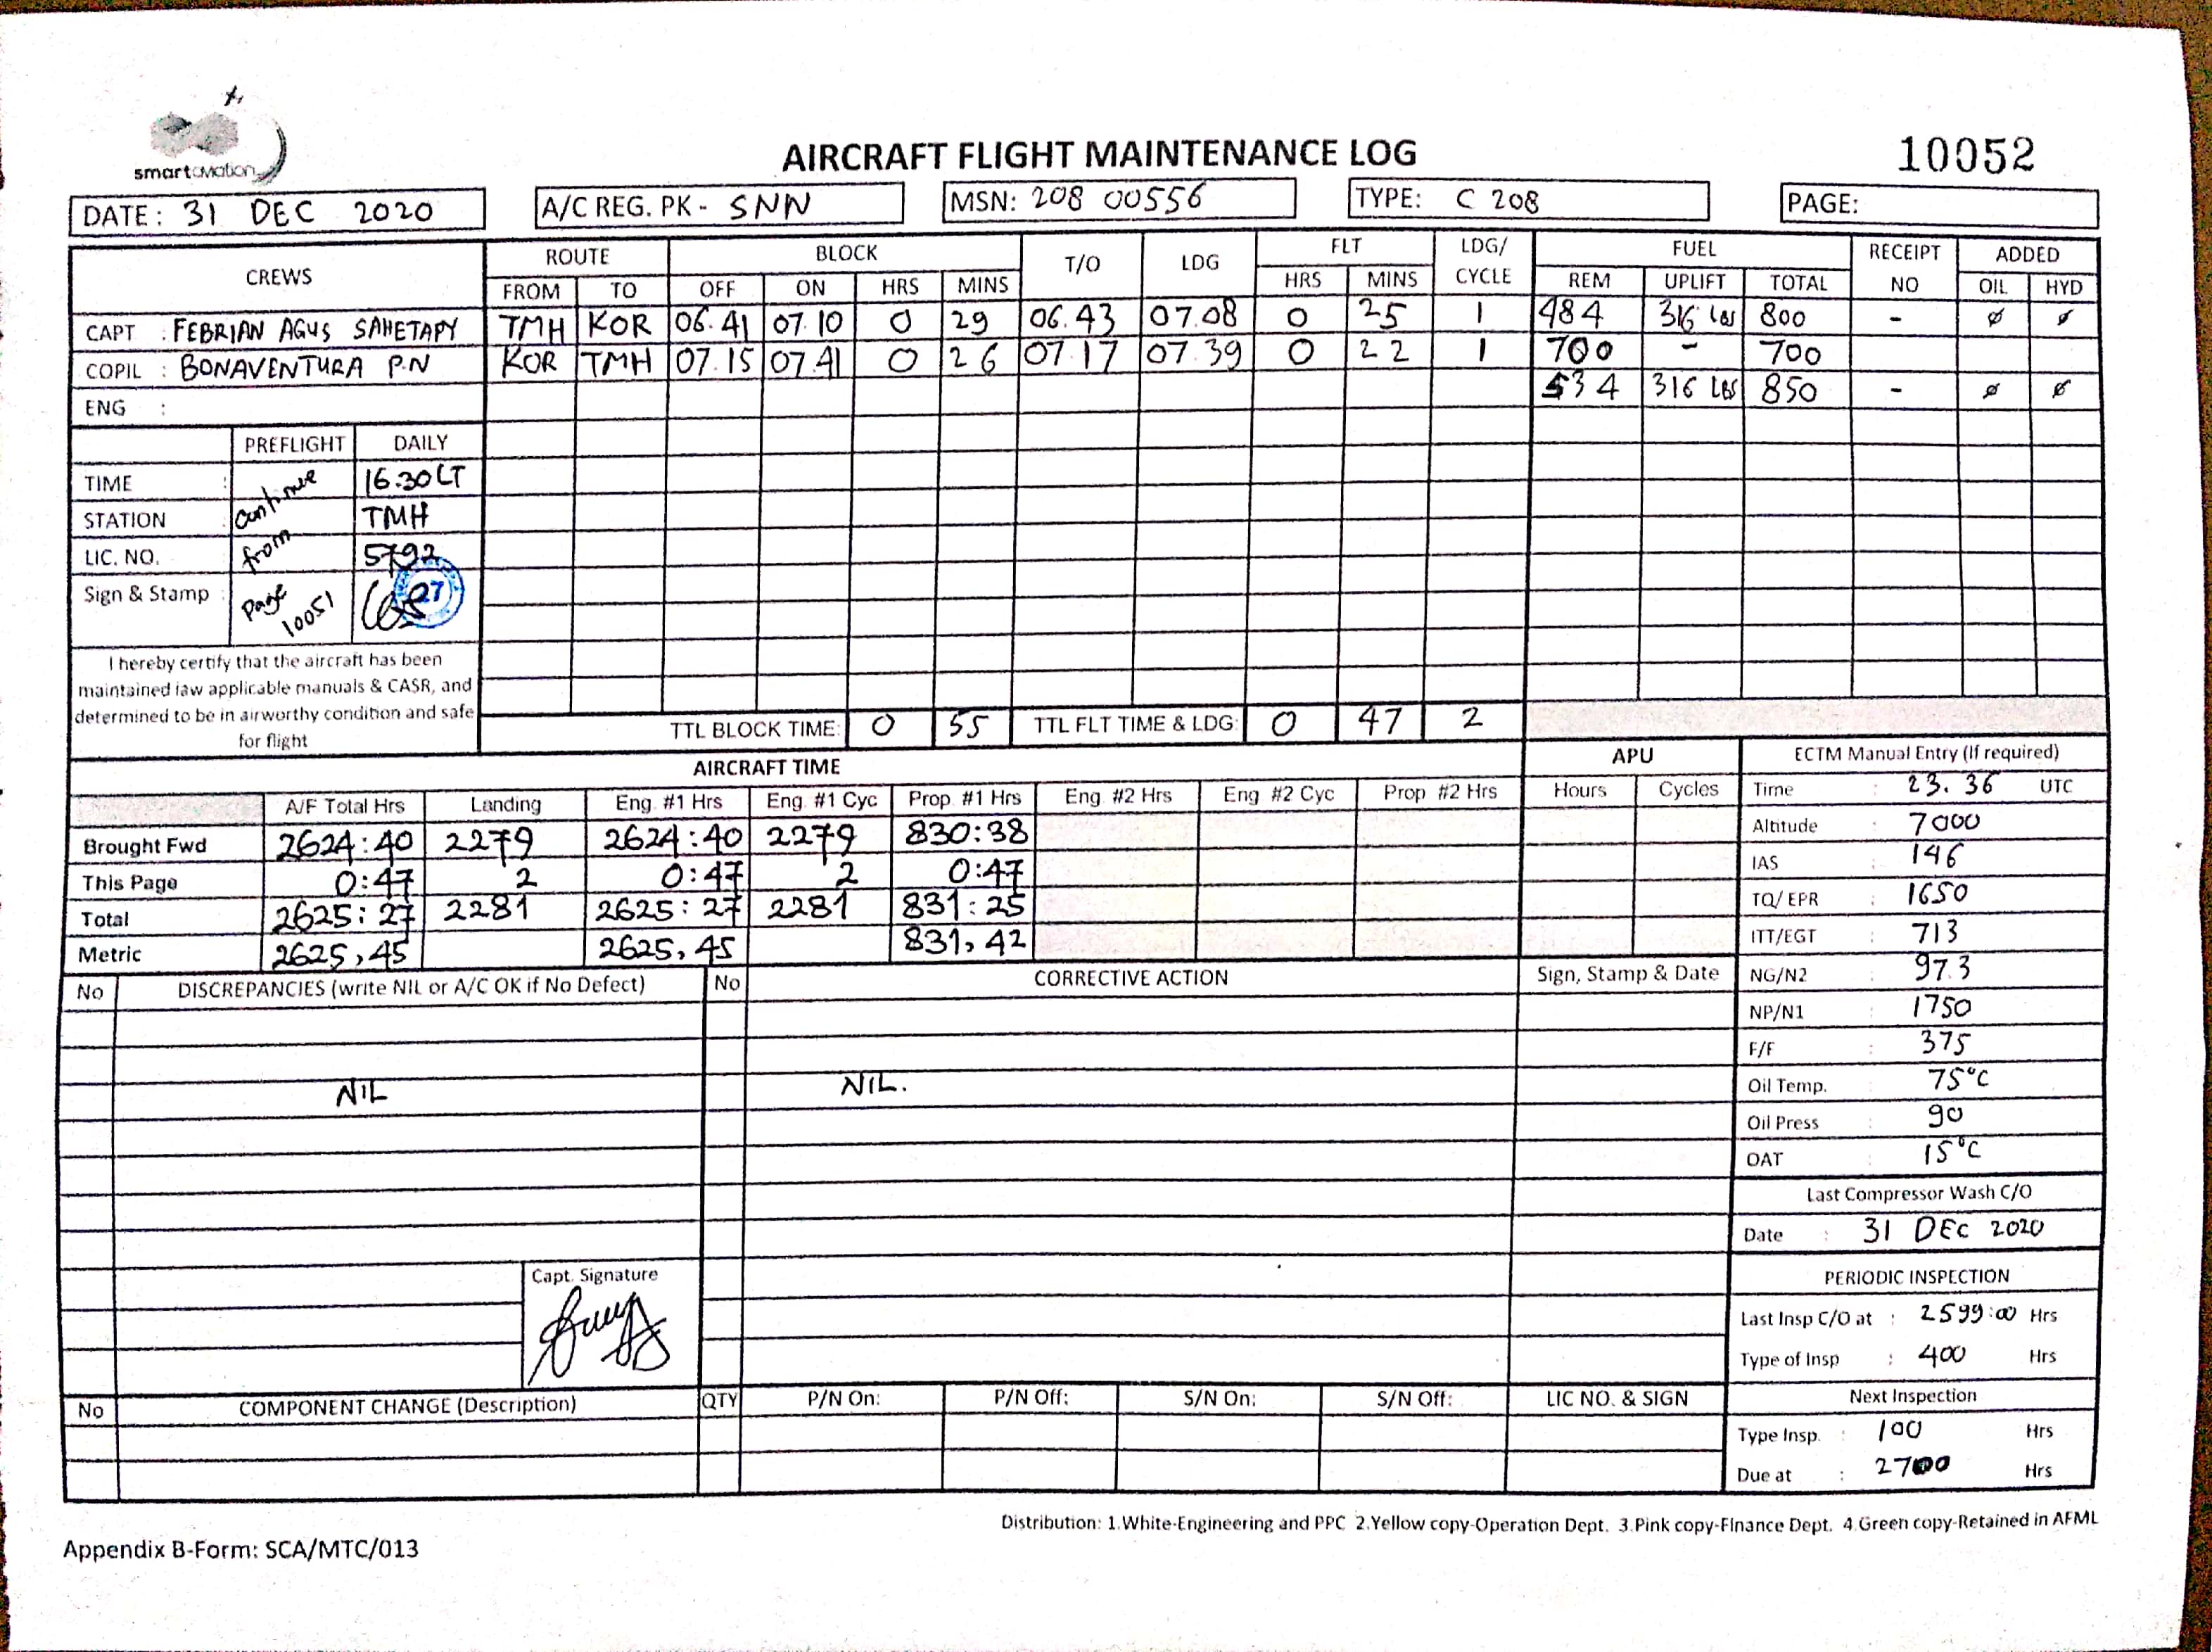 smartaviation
AIRCRAFT FLIGHT MAINTENANCE LOG
10052
DATE: 31 DEC 2020 A/C REG. PK - SNN MSN: 208 00556 TYPE: C 208 PAGE:
CREWS ROUTE BLOCK T/O LDG FLT LDG/ CYCLE FUEL RECEIPT NO ADDED
FROM TO OFF ON HRS MINS HRS MINS REM UPLIFT TOTAL OIL HYD
CAPT : FEBRIAN AGUS SAHETAPY TMH KOR 06.41 07.10 0 29 06.43 07.08 0 25 1 484 316 LBS 800 - ø ø
COPIL : BONAVENTURA P.N KOR TMH 07.15 07.41 0 26 07.17 07.39 0 22 1 700 - 700
ENG : 534 316 LBS 850 - ø ø
PREFLIGHT DAILY
TIME : 16.30 LT
STATION : TMH
LIC. NO. 5792
Sign & Stamp : 27
continue from page 10051
I hereby certify that the aircraft has been
maintained iaw applicable manuals & CASR, and
determined to be in airworthy condition and safe
for flight
TTL BLOCK TIME: 0 55 TTL FLT TIME & LDG: 0 47 2
AIRCRAFT TIME APU
A/F Total Hrs Landing Eng. #1 Hrs Eng. #1 Cyc Prop. #1 Hrs Eng. #2 Hrs Eng. #2 Cyc Prop. #2 Hrs Hours Cycles
Brought Fwd 2624:40 2279 2624:40 2279 830:38
This Page 0:47 2 0:47 2 0:47
Total 2625:27 2281 2625:27 2281 831:25
Metric 2625,45 2625,45 831,42
ECTM Manual Entry (If required)
Time : 23.36 UTC
Altitude : 7000
IAS : 146
TQ/ EPR : 1650
ITT/EGT : 713
NG/N2 : 97.3
NP/N1 : 1750
F/F : 375
Oil Temp. : 75°C
Oil Press : 90
OAT : 15°C
Last Compressor Wash C/O
Date : 31 DEC 2020
PERIODIC INSPECTION
Last Insp C/O at : 2599:00 Hrs
Type of Insp : 400 Hrs
Next Inspection
Type Insp. : 100 Hrs
Due at : 2700 Hrs
No DISCREPANCIES (write NIL or A/C OK if No Defect) No CORRECTIVE ACTION Sign, Stamp & Date
NIL NIL.
Capt. Signature
No COMPONENT CHANGE (Description) QTY P/N On: P/N Off: S/N On: S/N Off: LIC NO. & SIGN
Distribution: 1.White-Engineering and PPC 2.Yellow copy-Operation Dept. 3.Pink copy-Finance Dept. 4.Green copy-Retained in AFML
Appendix B-Form: SCA/MTC/013